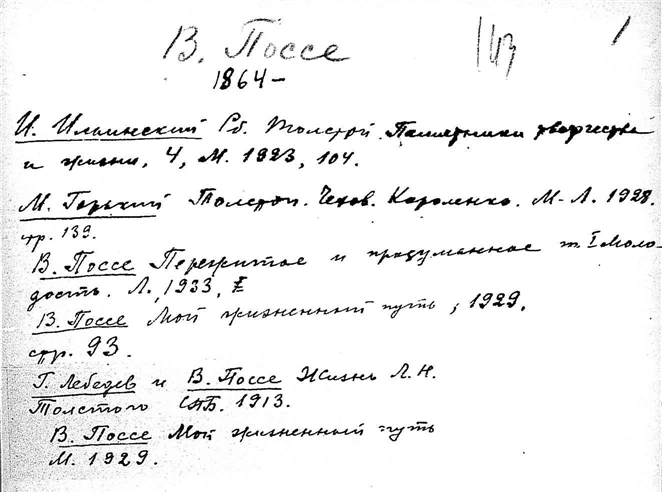 В. Поссе
1864–
1
И. Ильинский Сб. Толстой. Памятники творчества
и жизни, 4, М. 1923, 104.
М. Горький Толстой. Чехов. Короленко. М-Л. 1928.
стр. 139.
В. Поссе Пережитое и продуманное т. I Моло-
дость. Л., 1933, I
В. Поссе Мой жизненный путь, 1929.
стр. 93.
Г. Лебедев и В. Поссе Жизнь Л. Н.
Толстого СПБ. 1913.
В. Поссе Мой жизненный путь
М. 1929.